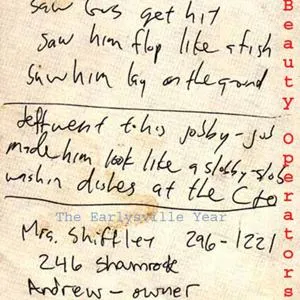 saw Gus get hit
saw him flop like a fish
saw him lay on the ground
Jeff went to his jobby-job
made him look like a slobby-slob
washin dishes at the C
The Earlysville Year
Mrs. Shiffley 296-1221
246 Shamrock
Andrew - owner
Beauty Operators